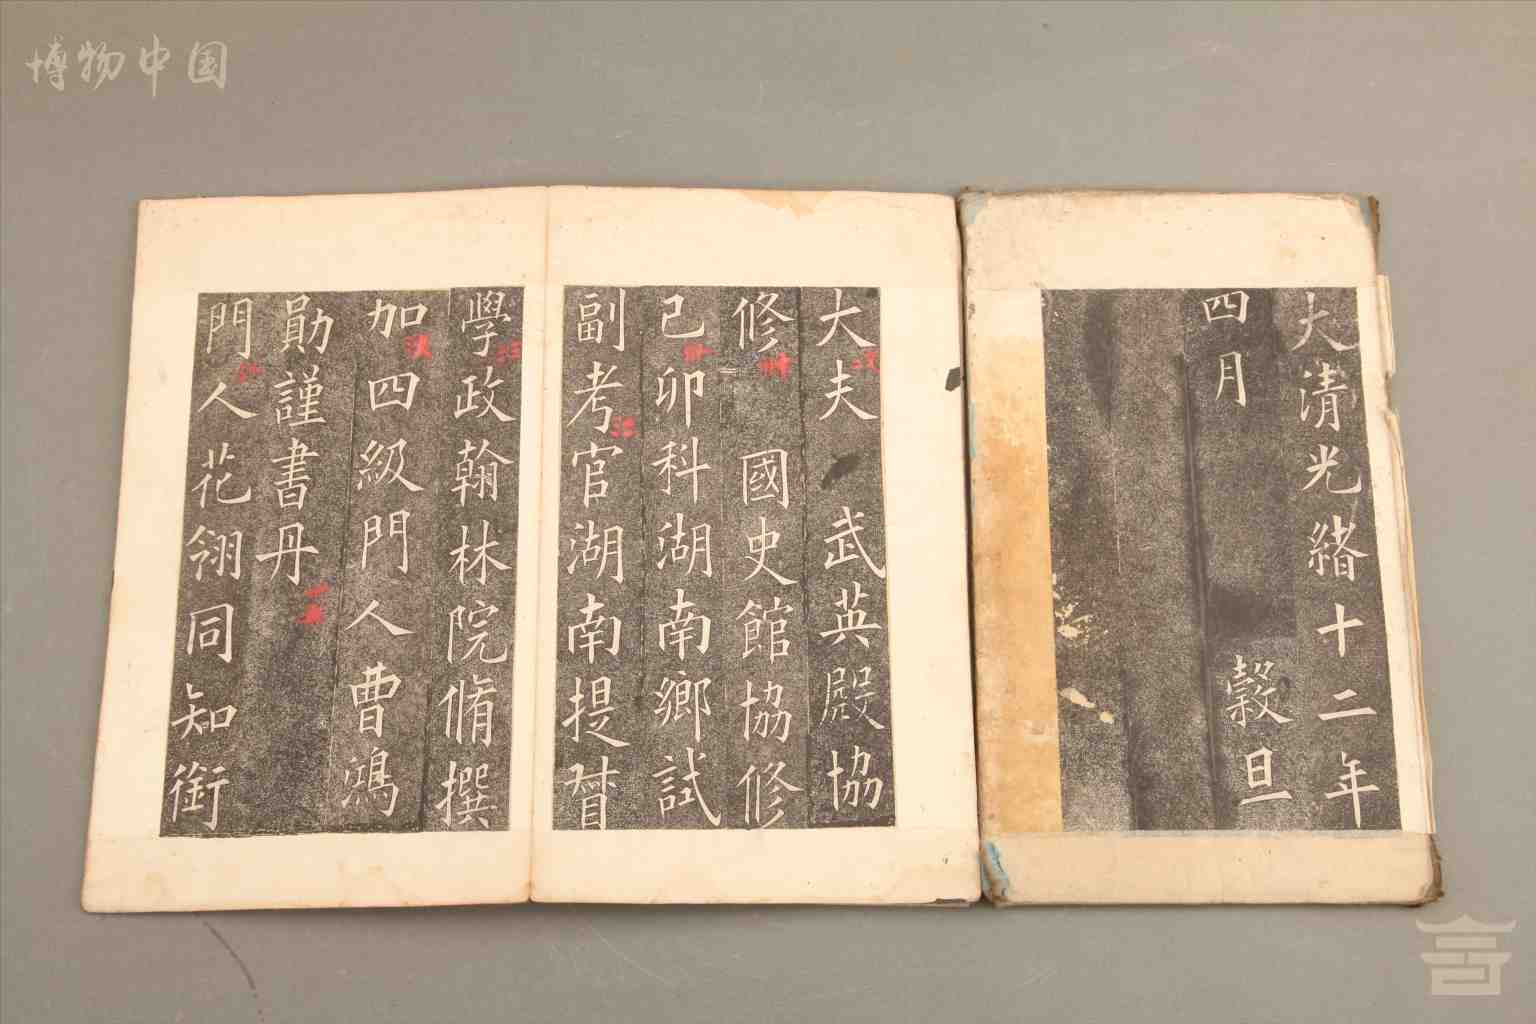 博物中国
大清光緒十二年
四月 穀旦
大夫 武英殿協
修 國史館協修
己卯科湖南鄉試
副考官湖南提督
學政翰林院脩撰
加四級門人曹鴻
勛謹書丹
門人花翎同知銜